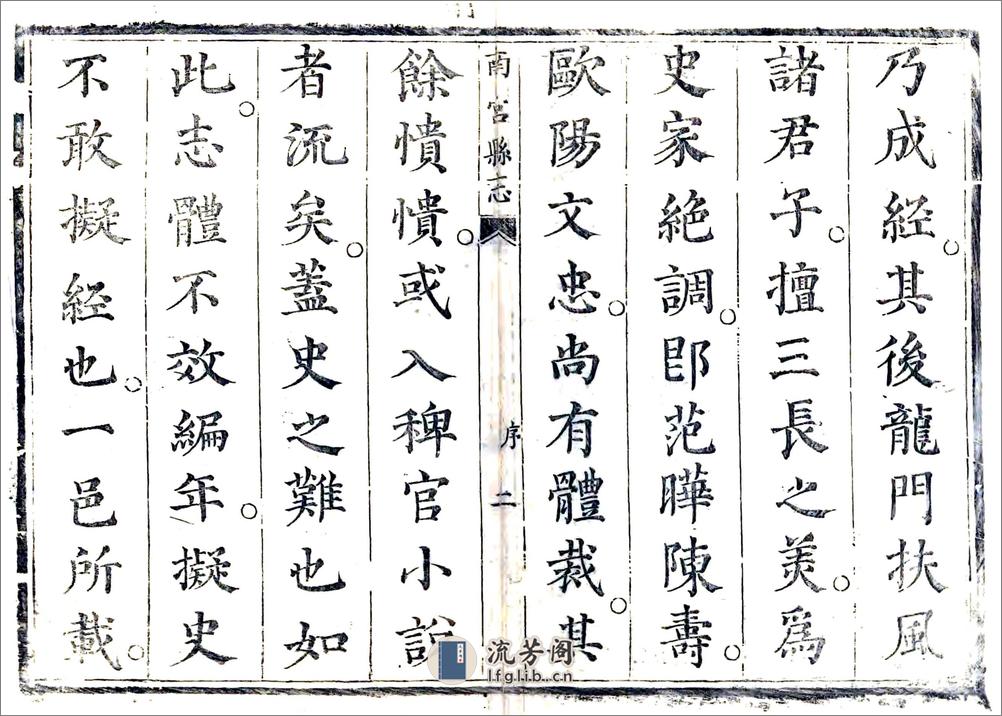 乃成経其後龍門扶風
諸君子擅三長之美爲
史家絶調即范曄陳壽
歐陽文忠尚有體裁其
南宮縣志
序
二
餘憒憒或入稗官小說
者流矣蓋史之難也如
此志體不效編年擬史
不敢擬経也一邑所載
流芳阁
lfglib.cn